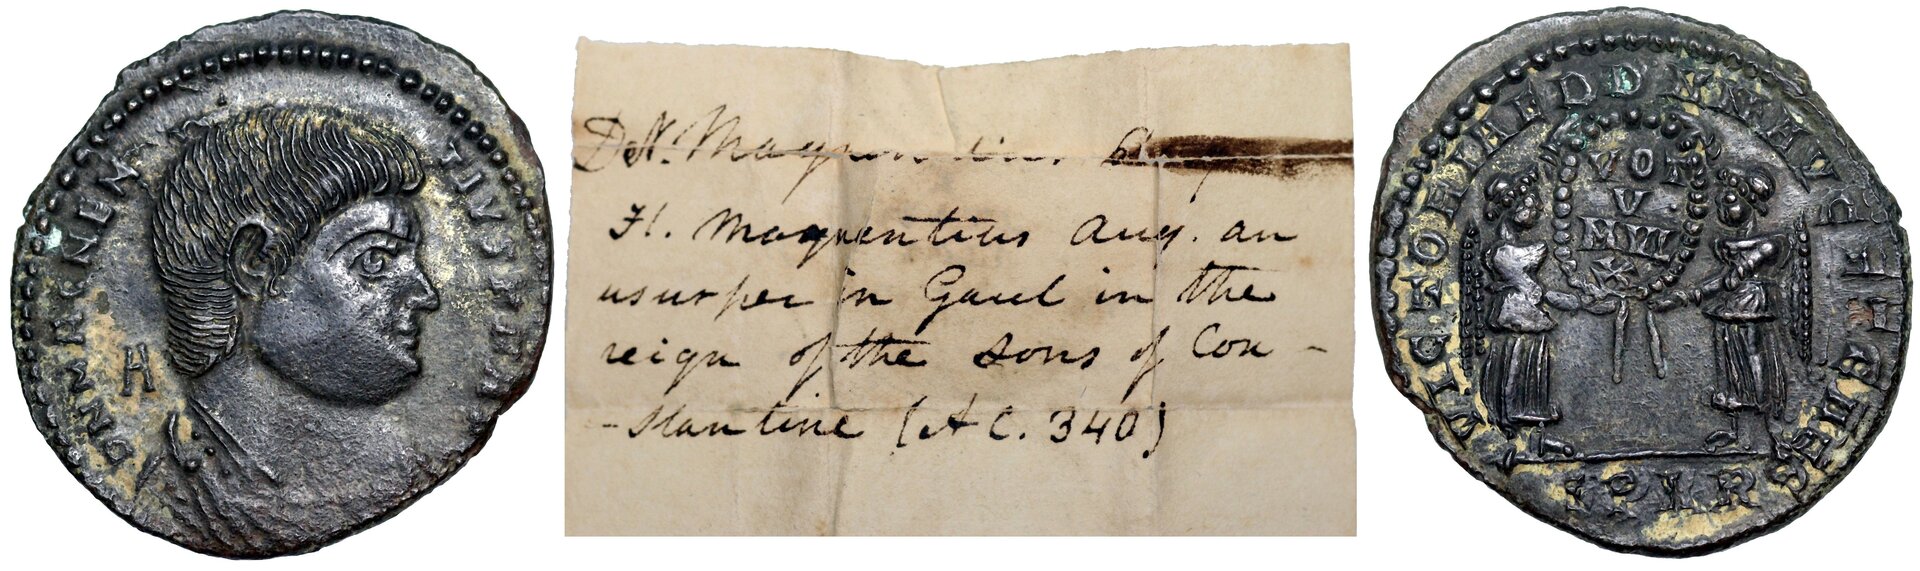 DN MAGNEN TIVS P F A
A
DN. Magnentius. A
Fl. Magnentius Aug. an
usurper in Gaul in the
reign of the sons of Con-
-stantine (AC. 340)
VICTORIAE DD NN AV
VOT
V
MVL
X